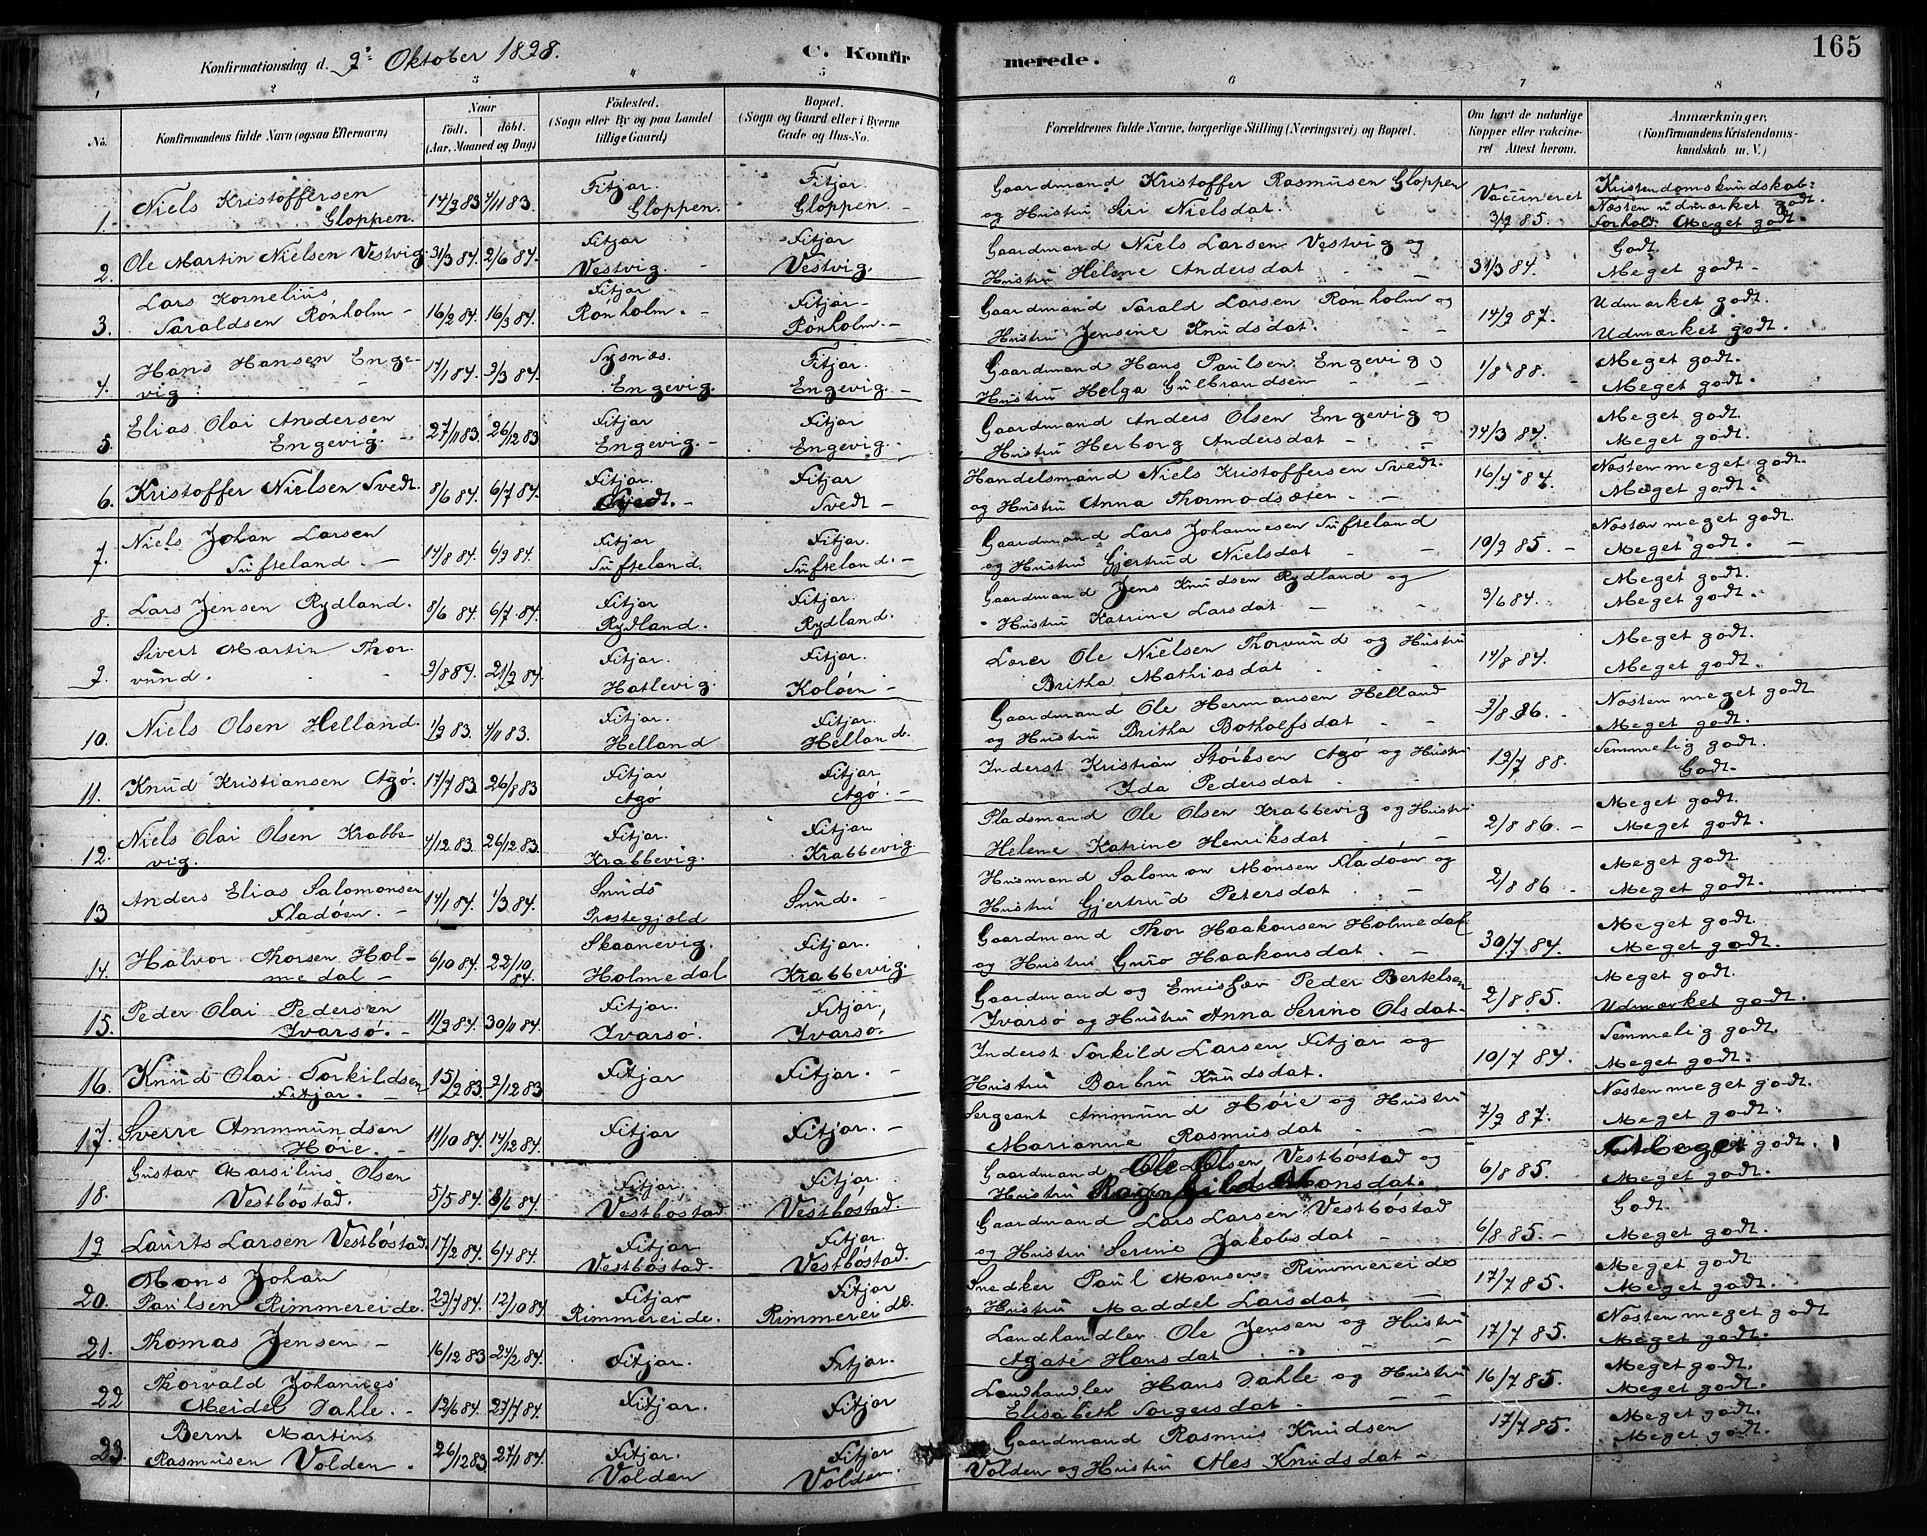 Konfirmationsdag d. 9de Oktober 1898. C. Konfirmerede. 165
1 2 3 4 5 6 7 8
No. Konfirmandens fulde Navn (ogsaa Efternavn) Naar født. døbt. (Aar, Maaned og Dag) Fødested. (Sogn eller By og paa Landet tillige Gaard) Bopæl. (Sogn og Gaard eller i Byerne Gade og Hus-No. Forældrenes fulde Navne, borgerlige Stilling (Næringsvei) og Bopæl. Om havt de naturlige Kopper eller vakcineret Attest herom. Anmærkninger, (Konfirmandens Kristendomskundskab m. V.)
1. Niels Kristoffersen Gloppen. 14/9 83 4/11 83. Fitjar. Gloppen. Fitjar. Gloppen Gaardmand Kristoffer Rasmusen Gloppen og Hustru Siri Nielsdat. Vaccineret 3/9 85. Kristendomskundskab: Næsten udmærket godt. Forhold: Meget godt.
2. Ole Martin Nielsen Vestvig 31/3 84. 2/6 84. Fitjar Vestvig. Fitjar Vestvig. Gaardmand Niels Larsen Vestvig og Hustru Helene Andersdat 31/3 84. Godt. Meget godt
3. Lars Kornelius Taraldsen Rønholm 16/2 84. 16/3 84. Fitjar Rønholm. Fitjar Rønholm. Gaardmand Tarald Larsen Rønholm og Hustru Jensine Knudsdat. 14/9 87. Udmærket godt. Udmærket godt.
4. Hans Hansen Engevig. 17/1 84. 2/3 84. Tysnæs. Engevig. Fitjar. Engevig. Gaardmand Hans Paulsen Engevig og Hustru Helga Gulbrandsen 1/8 88. Meget godt. Meget godt.
5. Elias Olai Andersen Engevig. 27/11 83. 26/12 83 Fitjar Engevig. Fitjar Engevig. Gaardmand Anders Olsen Engevig og Hustru Herborg Andersdat 14/3 84. Meget godt. Meget godt.
6. Kristoffer Nielsen Tvedt. 8/6 84. 6/7 84. Fitjar. Tvedt. Fitjar Tvedt Handelsmand Niels Kristoffersen Tvedt. og Hustru Anna Thormodsæter. 16/7 84. Næsten meget godt. Meget godt.
7. Niels Johan Larsen Tufteland. 14/8 84 6/9 84. Fitjar Tufteland. Fitjar. Tufteland. Gaardmand Lars Johannesen Tufteland og Hustru Gjertrud Nielsdat 10/9 85. Næsten meget godt. Meget godt.
8. Lars Jensen Rydland. 8/6 84. 6/7 84. Fitjar Rydland. Fitjar. Rydland. Gaardmand Jens Knudsen Rydland og Hustru Katrine Larsdat 3/6 84. Meget godt. Meget godt.
9. Sivert Martin Thorvund. 3/8 84. 21/9 84 Fitjar. Hatlevig. Fitjar. Koløen Lærer Ole Nielsen Thorvund og Hustru Britha Mathiasdat 14/8 84. Meget godt. Meget godt.
10. Niels Olsen Helland. 1/9 83. 4/11 83. Fitjar. Helland Fitjar. Helland. Gaardmand Ole Hermansen Helland og Hustru Britha Botholfsdat 2/8 86. Næsten meget godt Meget godt.
11. Knud Kristiansen Agø. 17/7 83. 26/8 83 Fitjar Agø Fitjar Agø. Inderst Kristian Størksen Agø og Hustru Ida Pedersdat 12/7 88. Temmelig godt. Godt.
12. Niels Olai Olsen Krabbevig. 4/12 83. 26/12 83 Fitjar. Krabbevig. Fitjar Krabbevig. Pladsmand Ole Olsen Krabbevig og Hustru Helene Katrine Henriksdat 2/8 86. Meget godt. Meget godt.
13 Anders Elias Salomonsen Fladøen. 14/1 84. 1/3 84. Sunds Præstegjæld Sund. Husmand Salomon Monsen Fladøen og Hustru Gjertrud Petersdat. 2/8 86 Meget godt. Meget godt.
14. Halvor Thorsen Holmedal 6/10 84. 22/10 84. Skaanevig. Holmedal Fitjar. Krabbevig Gaardmand Thor Haakonsen Holmedal og Hustru Guro Haakonsdat. 30/7 84. Meget godt. Meget godt.
15. Peder Olai Pedersen Ivarsø. 11/9 84. 30/11 84. Fitjar. Ivarsø. Fitjar. Ivarsø. Gaardmand og Emissær Peder Bertelsen Ivarsø og Hustru Anna Serine Olsdat 2/8 85. Meget godt. Udmærket godt.
16. Knud Olai Torkildsen Fitjar. 15/9 83. 2/12 83 Fitjar Fitjar. Inderst Torkild Larsen Fitjar og Hustru Barbru Knudsdat. 10/7 84. Temmelig godt. Meget godt.
17. Sverre Ammundsen Høie. 11/10 84. 14/12 84. Fitjar Fitjar. Sergeant Ammund Høie og Hustru Marianne Rasmusdat 7/9 87. Næsten meget godt. Meget godt.
18. Gustav Marsilius Olsen Vestbøstad. 5/5 84. 8/6 84. Fitjar. Vestbøstad Fitjar. Vestbøstad. Gaardmand Ole Olsen Vestbøstad og Hustru Ragnhild Monsdat. 6/8 85. Meget godt. Meget godt.
19 Laurits Larsen Vestbøstad. 17/2 84. 6/4 84. Fitjar Vestbøstad. Fitjar. Vestbøstad. Gaardmand Lars Larsen Vestbøstad og Hustru Serine Jakobsdat 6/8 85. Godt. Meget godt.
20. Mons Johan Paulsen Rimmereide. 23/7 84. 12/10 84. Fitjar Rimmereide. Fitjar Rimmereide. Snedker Paul Monsen Rimmereide Hustru Maddel Larsdat 17/7 85. Meget godt Meget godt.
21. Thomas Jensen 16/12 83 24/2 84. Fitjar. Fitjar. Landhandler Ole Jensen og Hustru Agate Hansdat 17/7 85. Næsten meget godt Meget godt.
22 Thorvald Johannes Meidel Dahle. 12/6 84. 27/7 84. Fitjar. Fitjar Landhandler Hans Dahle og Hustru Elisabeth Torgersdat. 16/7 85. Meget godt. Meget godt.
23. Bernt Martin Rasmusen Volden. 26/12 83. 27/1 84. Fitjar. Volden Fitjar Volden. Gaardmand Rasmus Knudsen Volden og Hustru Ales Knudsdat 17/7 85. Meget godt. Meget godt.